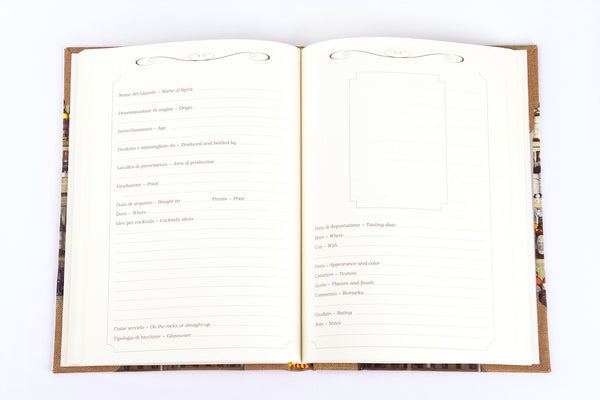 Nome del Liquore – Name of Spirit
Denominazione di origine – Origin
Invecchiamento – Age
Prodotto e imbottigliato da – Produced and bottled by
Località di provenienza – Area of production
Gradazione – Proof
Data di acquisto – Bought on Prezzo – Price
Dove – Where
Idee per cocktails – Cocktails ideas
Come servirlo – On the rocks or straight up
Tipologia di bicchiere – Glassware
Data di degustazione – Tasting date
Dove – Where
Con – With
Vista – Appearance and color
Carattere – Texture
Gusto – Flavors and finish
Commento – Remarks
Giudizio – Rating
Note – Notes